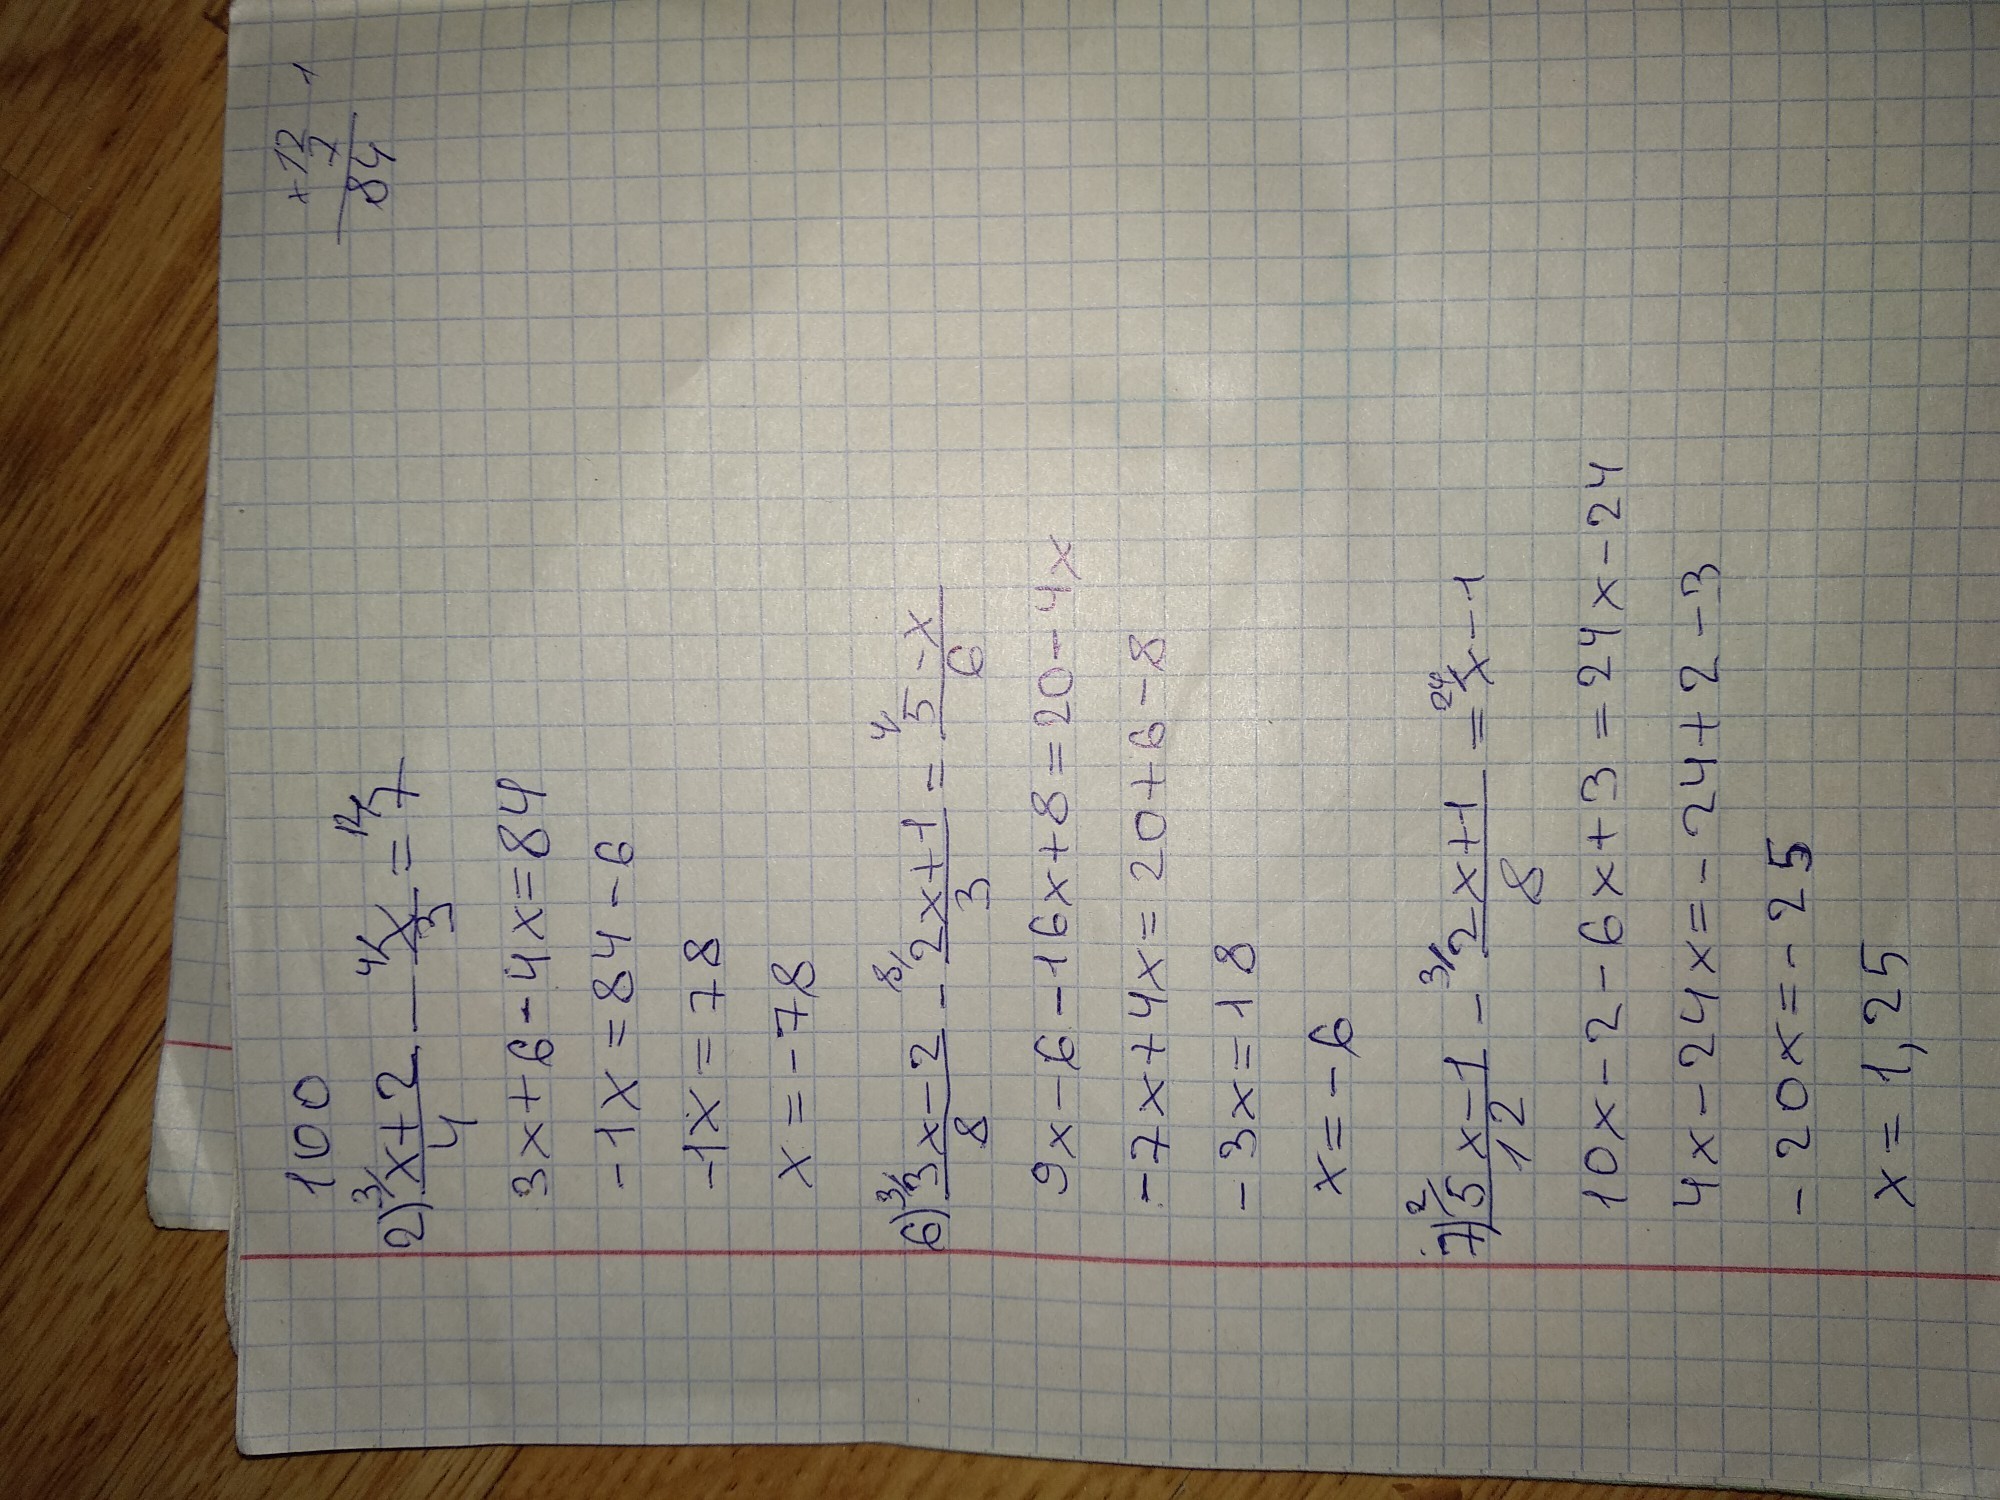 100
×12
7
84
1
2) 3/ x+2/4 — 4/ x/3 = 12/ 7
3x+6-4x=84
-1x=84-6
-1x=78
x=-78
6) 3/ 3x-2/8 - 8/ 2x+1/3 = 4/ 5-x/6
9x-6-16x+8=20-4x
-7x+4x=20+6-8
-3x=18
x=-6
7) 2/ 5x-1/12 - 3/ 2x+1/8 = 24/ x-1
10x-2-6x+3=24x-24
4x-24x=-24+2-3
-20x=-25
x=1,25